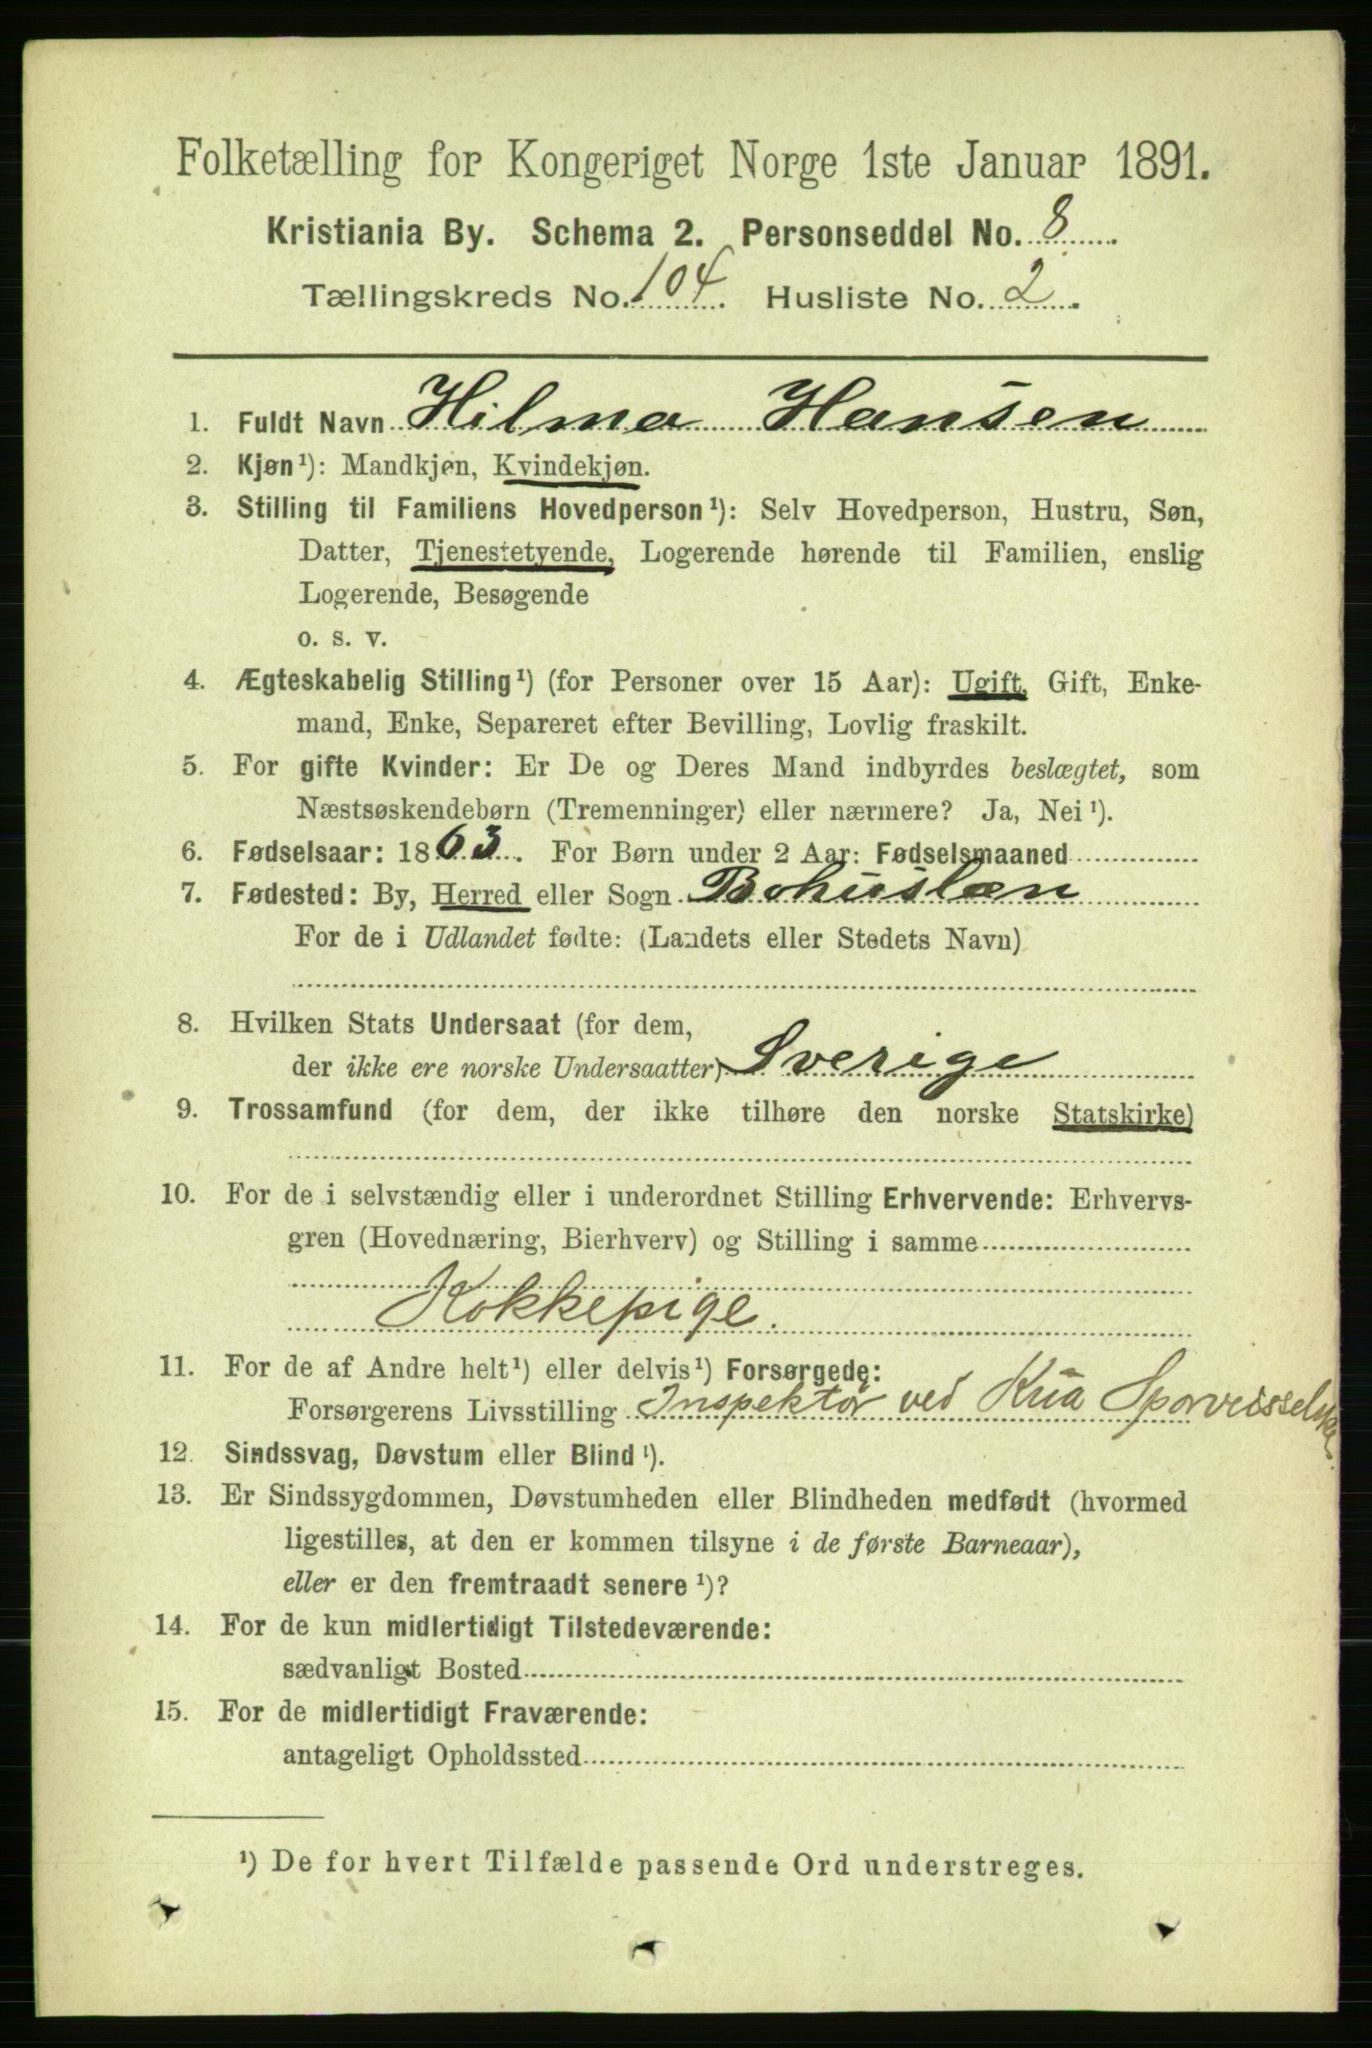 Folketælling for Kongeriget Norge 1ste Januar 1891.
Kristiania By. Schema 2. Personseddel No. 8.
Tællingskreds No. 104. Husliste No. 2.
1. Fuldt Navn Hilma Hansen
2. Kjøn¹): Mandkjøn, Kvindekjøn.
3. Stilling til Familiens Hovedperson¹): Selv Hovedperson, Hustru, Søn,
Datter, Tjenestetyende, Logerende hørende til Familien, enslig
Logerende, Besøgende
o. s. v.
4. Ægteskabelig Stilling¹) (for Personer over 15 Aar): Ugift, Gift, Enke-
mand, Enke, Separeret efter Bevilling, Lovlig fraskilt.
5. For gifte Kvinder: Er De og Deres Mand indbyrdes beslægtet, som
Næstsøskendebørn (Tremenninger) eller nærmere? Ja, Nei¹).
6. Fødselsaar: 1863. For Børn under 2 Aar: Fødselsmaaned
7. Fødested: By, Herred eller Sogn Bohuslæn
For de i Udlandet fødte: (Landets eller Stedets Navn)
8. Hvilken Stats Undersaat (for dem,
der ikke ere norske Undersaatter) Sverige
9. Trossamfund (for dem, der ikke tilhøre den norske Statskirke)
10. For de i selvstændig eller i underordnet Stilling Erhvervende: Erhvervs-
gren (Hovednæring, Bierhverv) og Stilling i samme
Kokkepige.
11. For de af Andre helt¹) eller delvis¹) Forsørgede:
Forsørgerens Livsstilling Inspektør ved Kria
12. Sindssvag, Døvstum eller Blind¹).
13. Er Sindssygdommen, Døvstumheden eller Blindheden medfødt (hvormed
ligestilles, at den er kommen tilsyne i de første Barneaar),
eller er den fremtraadt senere¹)?
14. For de kun midlertidigt Tilstedeværende:
sædvanligt Bosted
15. For de midlertidigt Fraværende:
antageligt Opholdssted
¹) De for hvert Tilfælde passende Ord understreges.